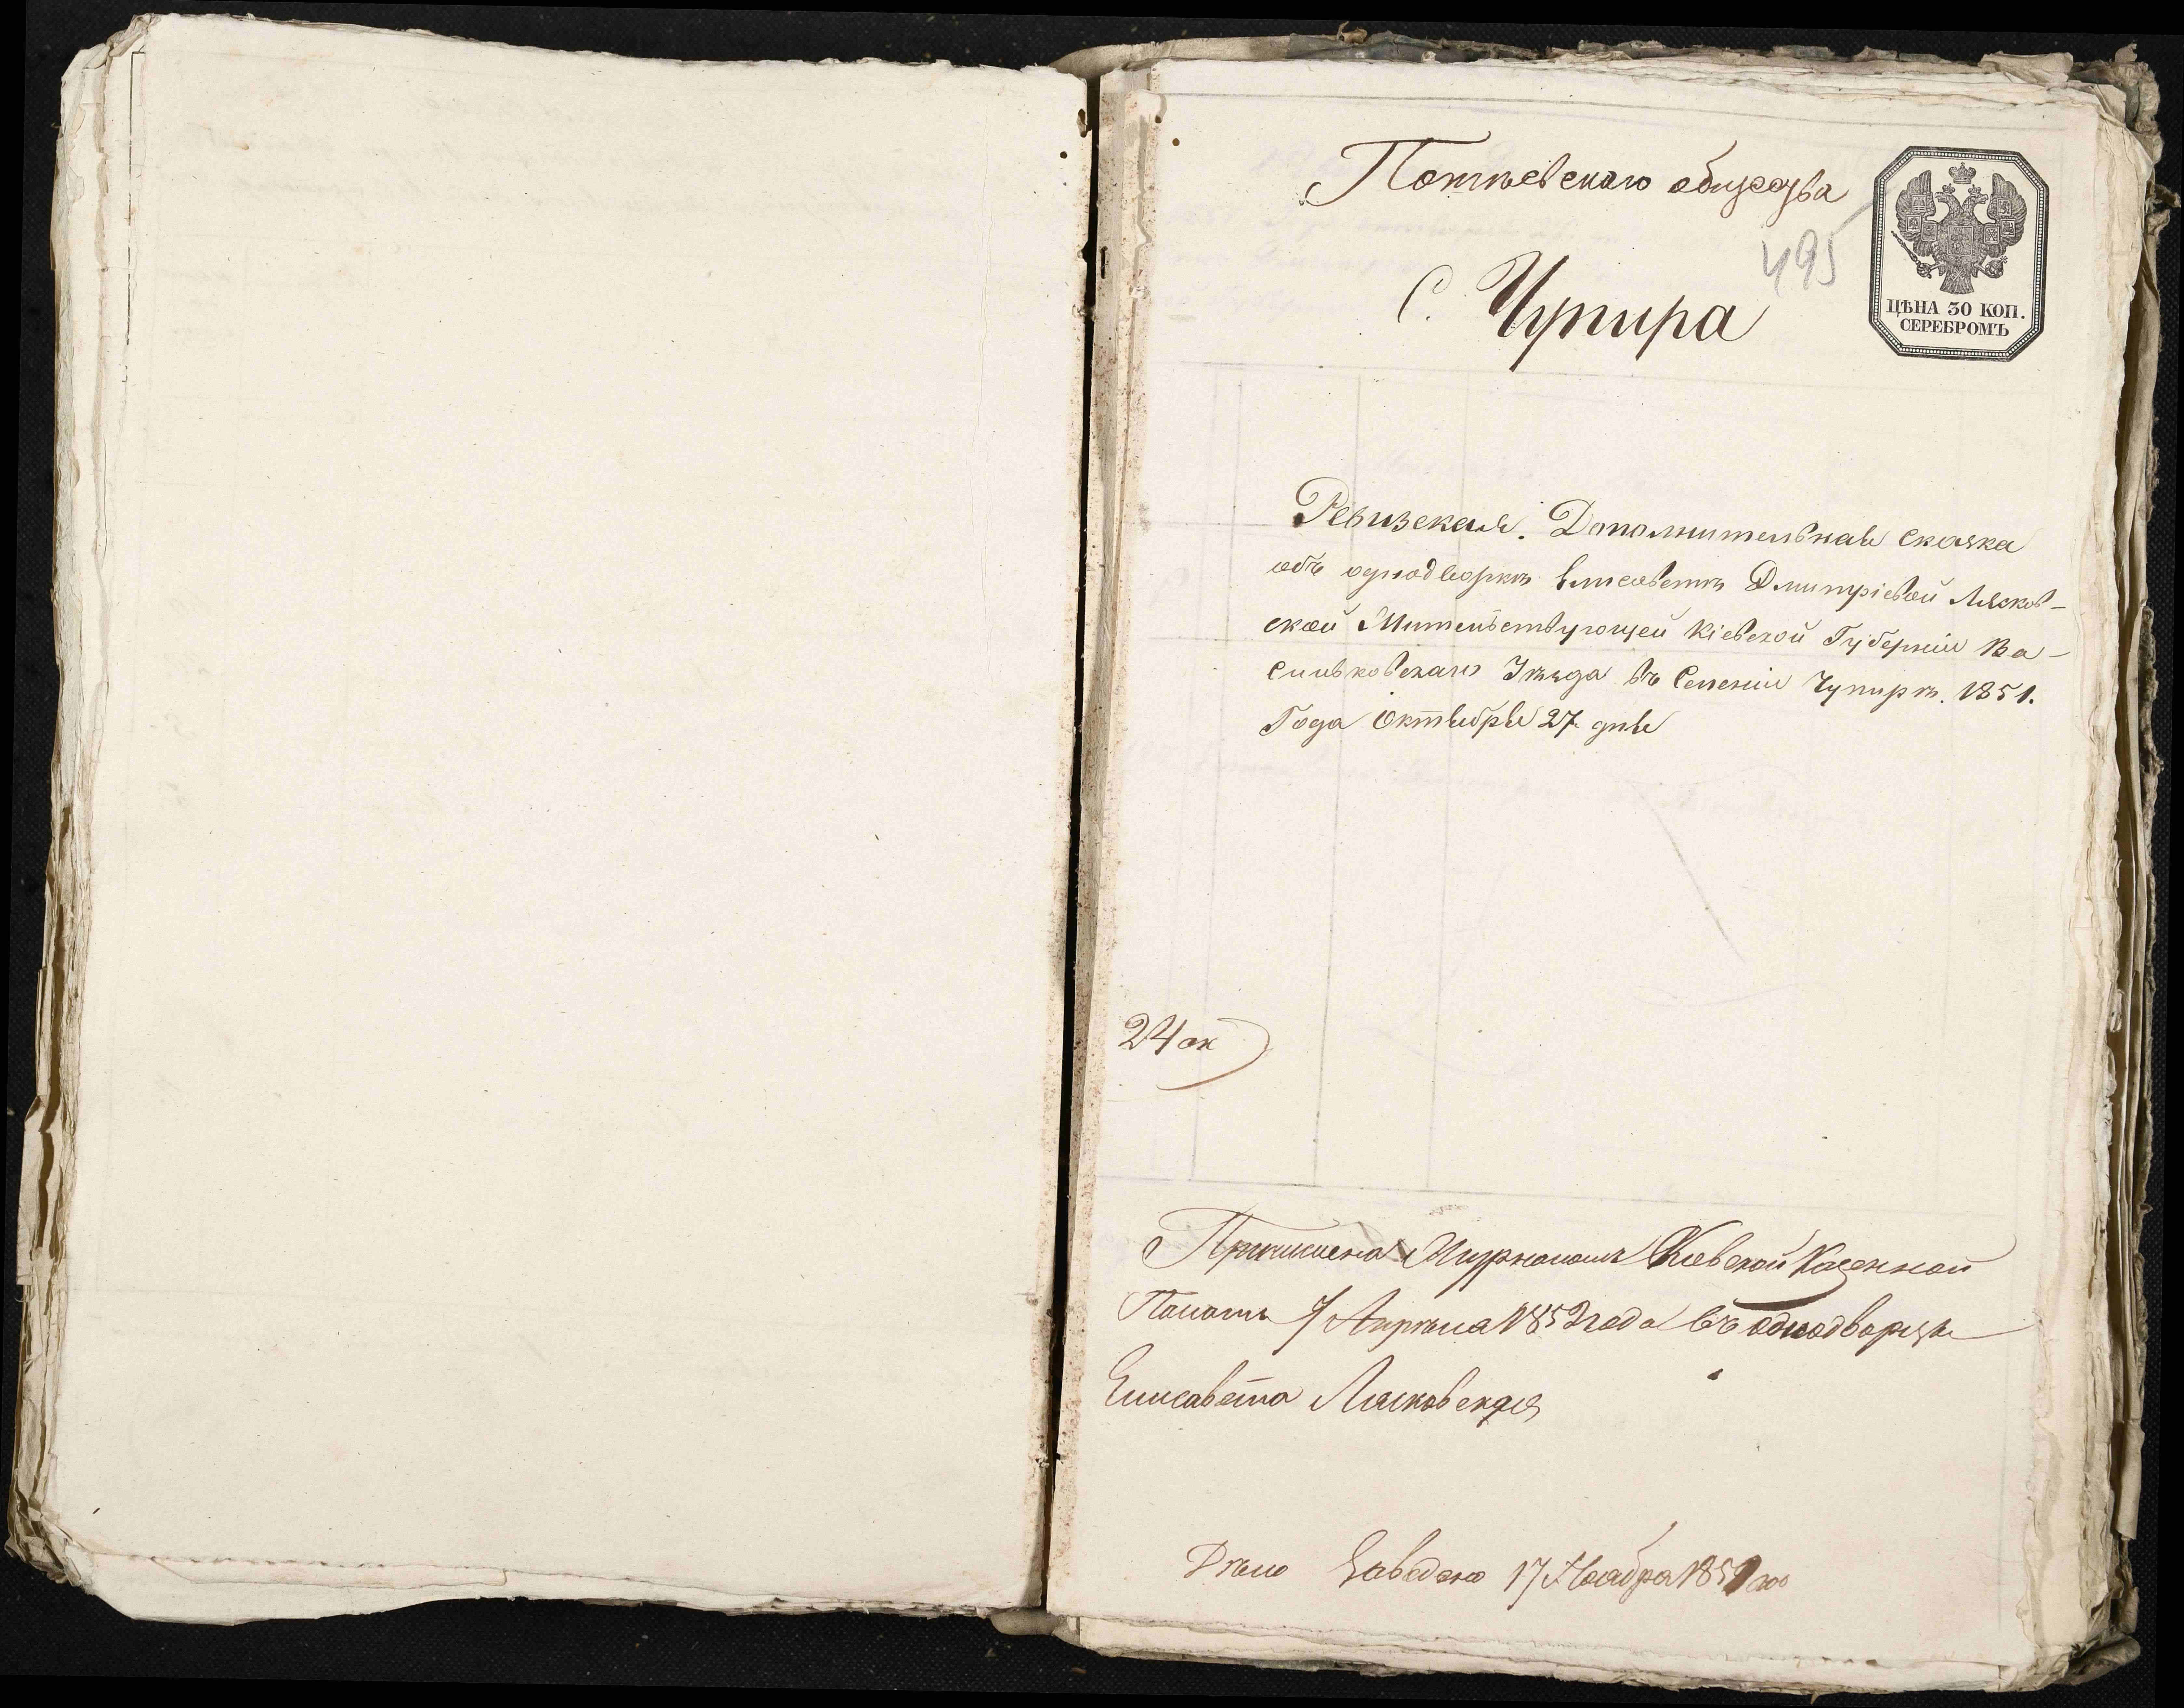 Потѣевскаго общества
495
С. Чупира
ЦѢНА 30 КОП.
СЕРЕБРОМЪ
Ревизская. Дополнительная сказка
объ однодворкѣ Елисаветѣ Дмитріевой Лясков-
ской Жительствующей Кіевской Губерніи Ва-
сильковскаго Уѣзда въ Селеніи Чупирѣ. 1851.
Года Октября 27 дня
24 ок
Причислена Журналомъ Кіевской Казенной
Палаты 7 Апрѣля 1852 года въ однодворцы
Елисавета Лясковская
Дѣло Заведено 17 Ноября 1851 го